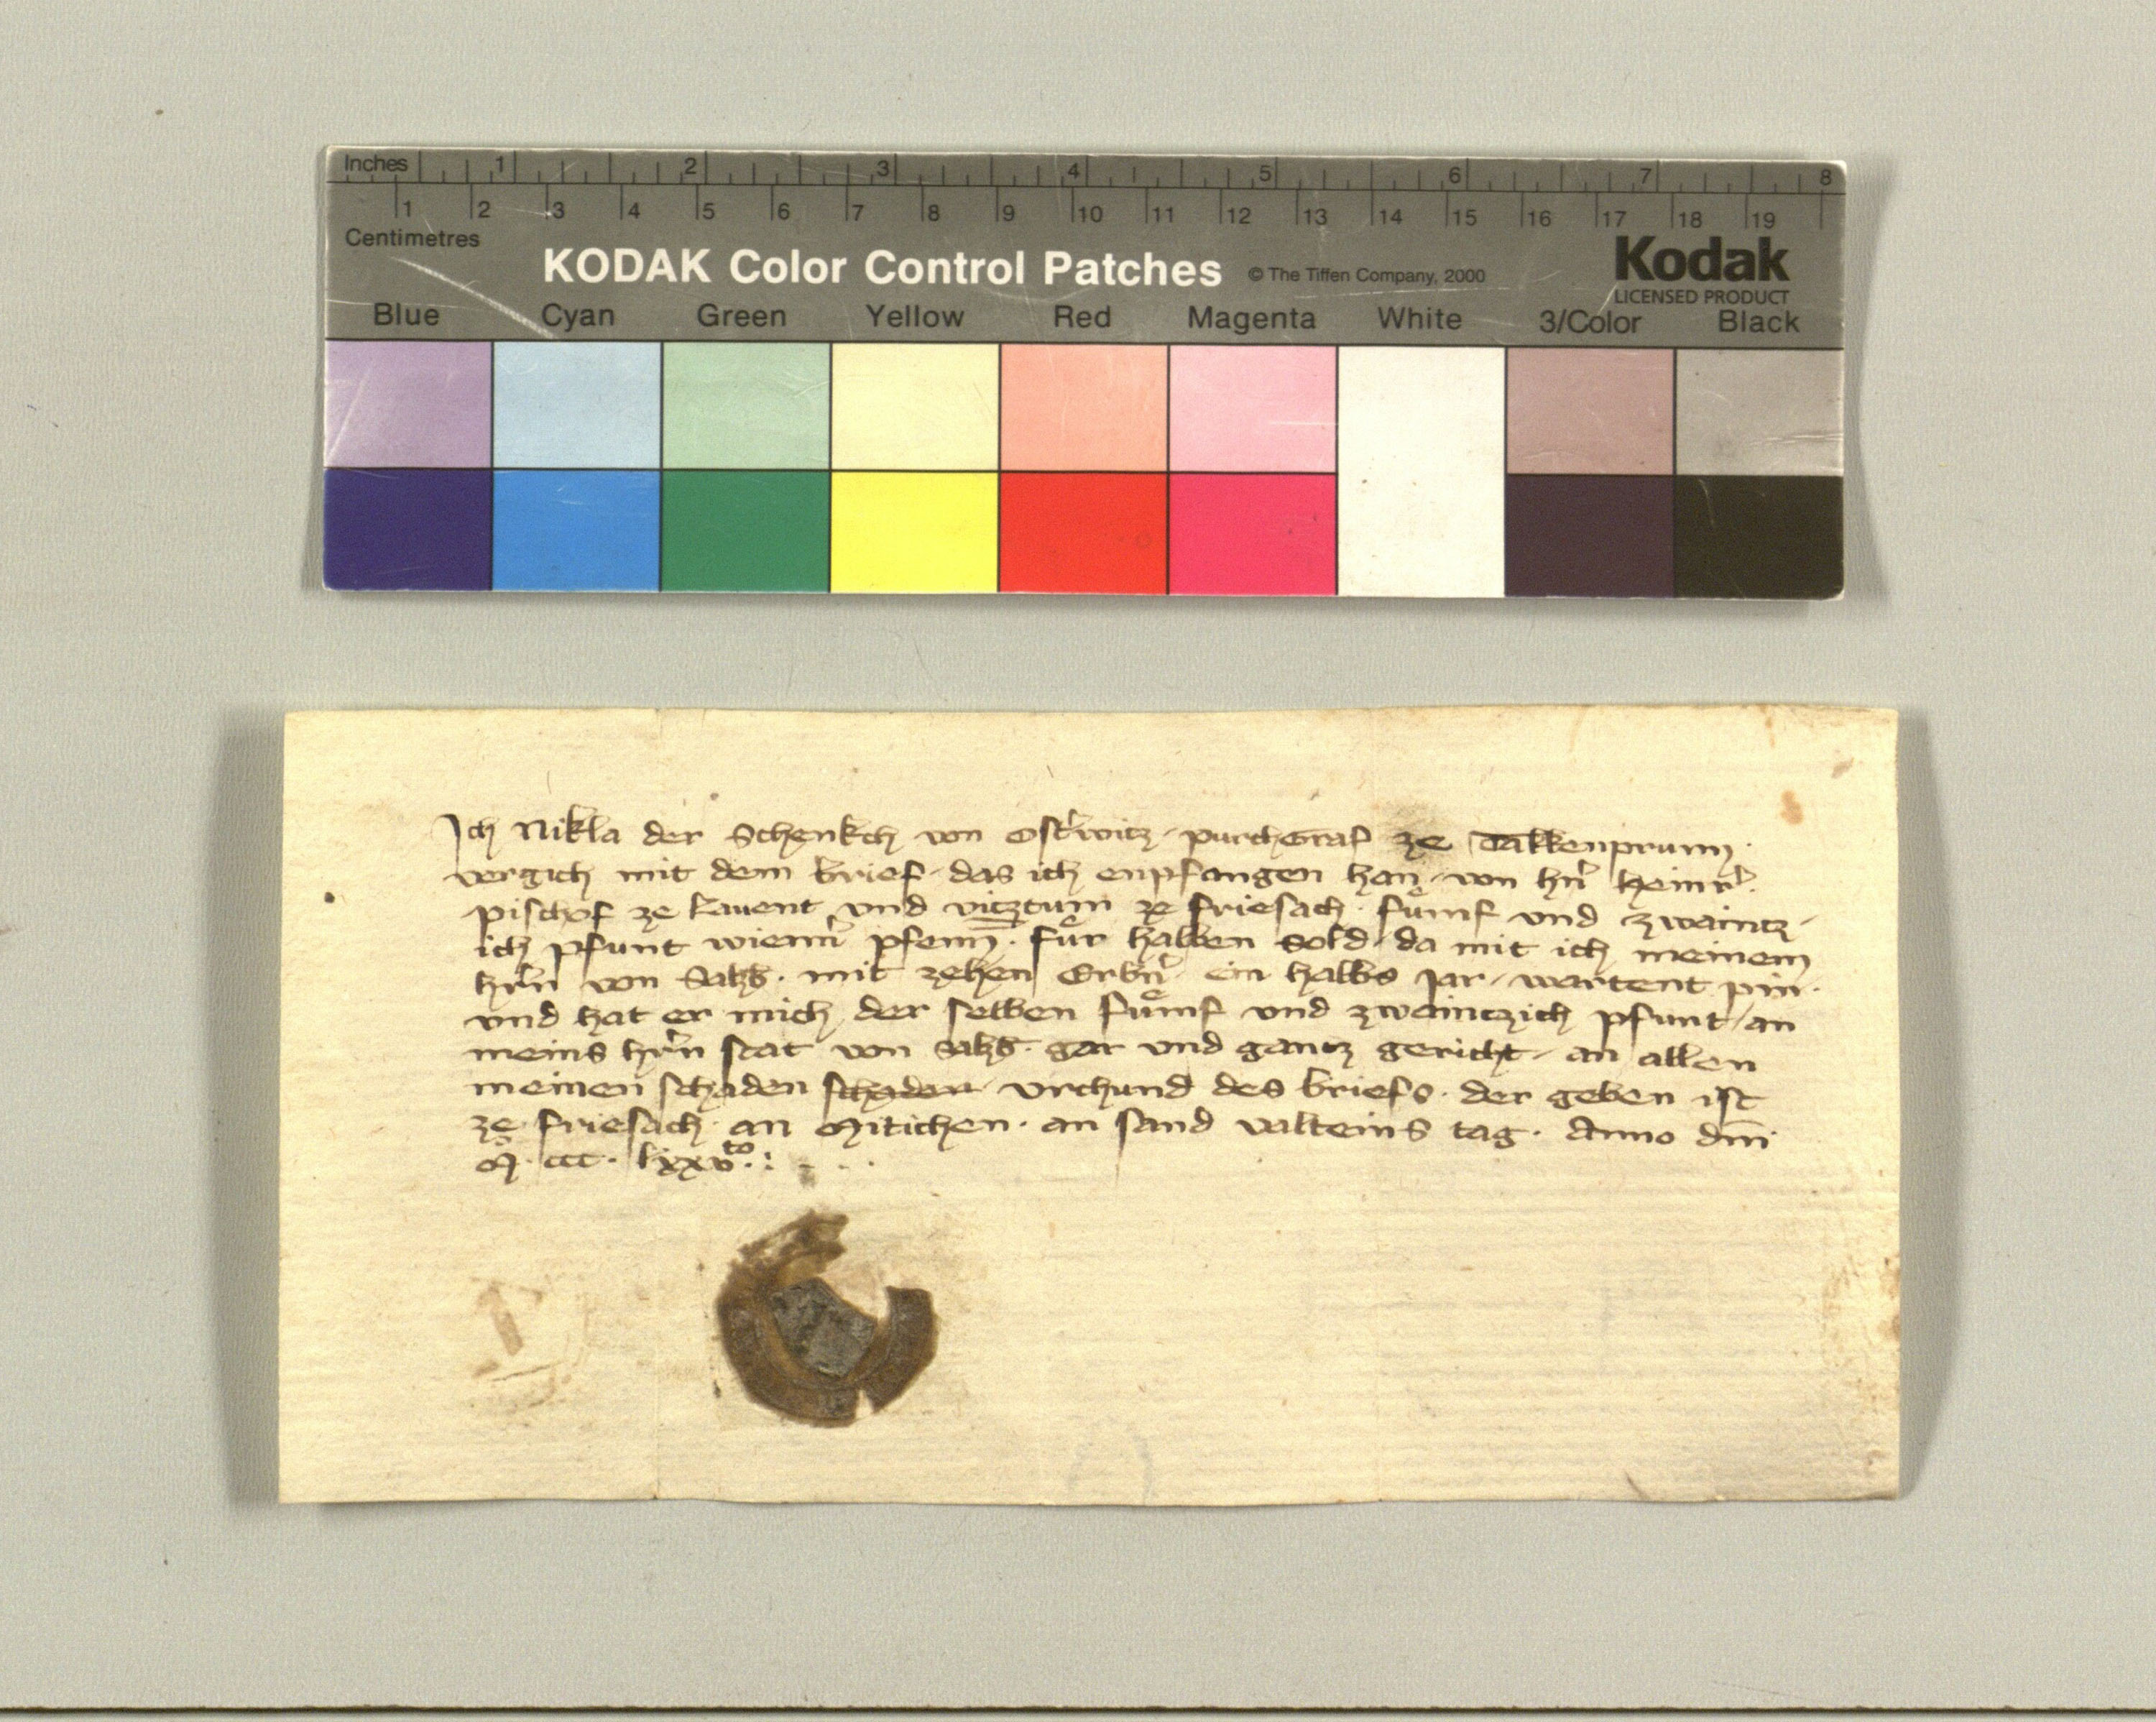 Inches 1 2 3 4 5 6 7 8
1 2 3 4 5 6 7 8 9 10 11 12 13 14 15 16 17 18 19
Centimetres
KODAK Color Control Patches © The Tiffen Company, 2000 Kodak
LICENSED PRODUCT
Blue Cyan Green Yellow Red Magenta White 3/Color Black
Ich Nikla der Schenkch von Ostr̃witz purchgraf ze Talkenprunn
vergich mit dem brief das ich enpfangen han von hñ heinr̃
pischof ze Lauent und vitztum ze friesach fuͤmf und zwaintz
ich pfunt wienñ pfenn̄ fuͤr halben sold da mit ich meinem
hr̃n von Salzb mit zehen Erbñ ein halbs jar wartent pin
und hat er mich der selben fuͤmf und zwaintzich pfunt an
meins hr̃n stat von Salzb gar und gantz gericht an allen
meinen schaden schaden urchund des briefs der geben ist
ze friesach an Mitichen an sand valteins tag Anno dm̄
M ccc lxxvto